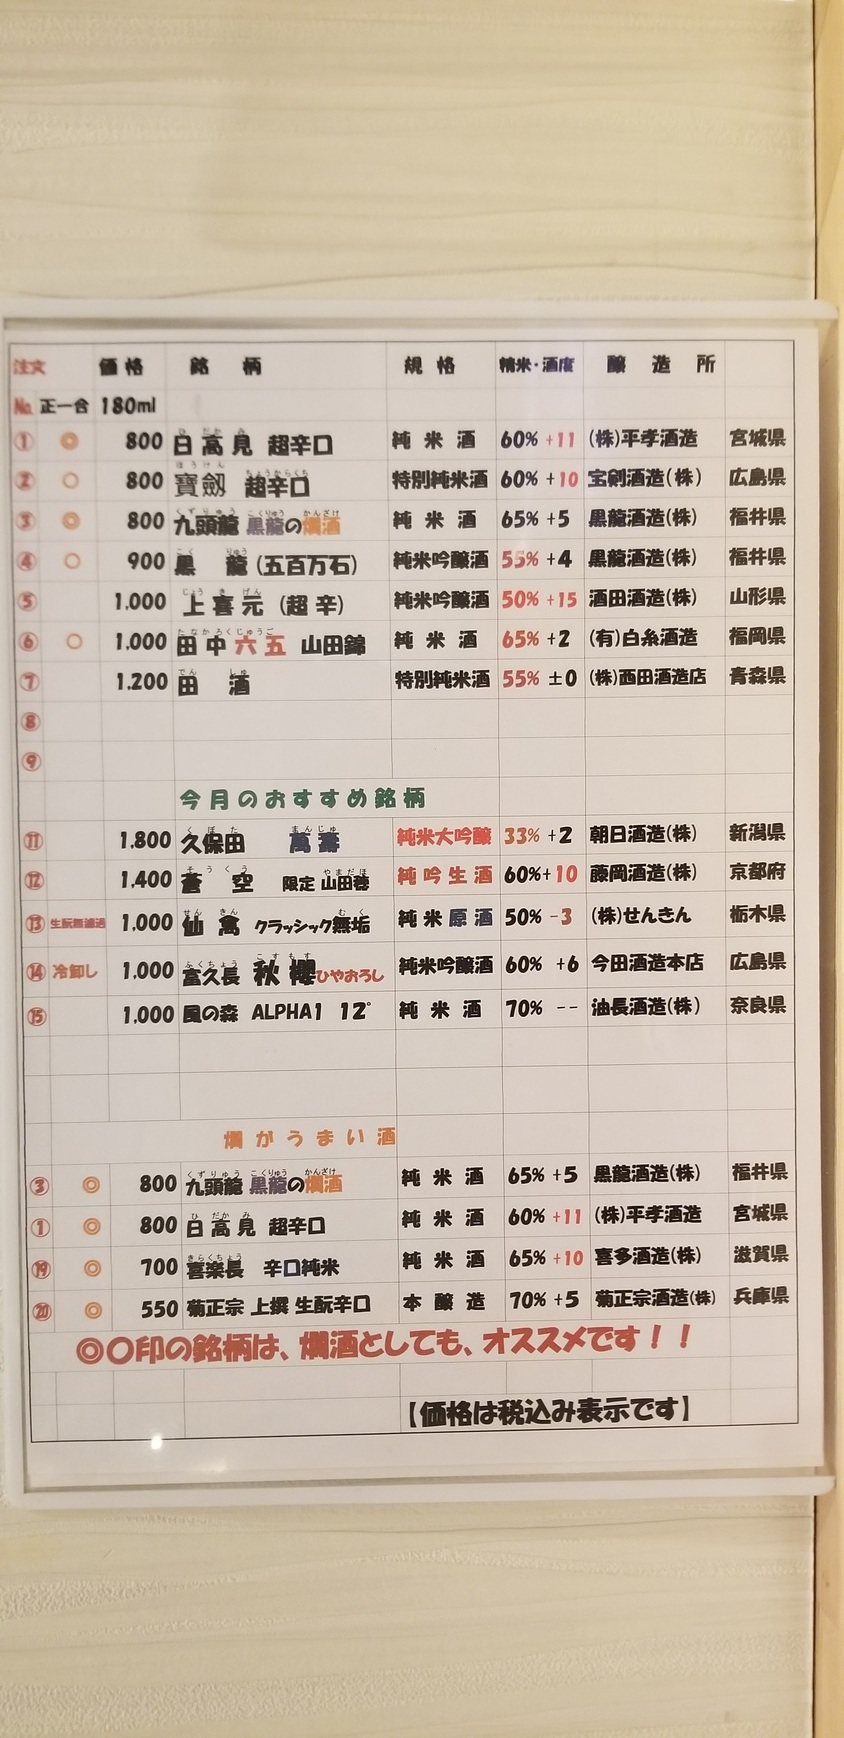 注文 価格 銘柄 規格 精米・酒度 醸造所
No. 正一合 180ml
① ◎ 800 日高見 超辛口 純米酒 60% +11 (株)平孝酒造 宮城県
② ○ 800 寶劔 超辛口 特別純米酒 60% +10 宝剣酒造(株) 広島県
③ ◎ 800 九頭龍 黒龍の燗酒 純米酒 65% +5 黒龍酒造(株) 福井県
④ ○ 900 黒龍 (五百万石) 純米吟醸酒 55% +4 黒龍酒造(株) 福井県
⑤ 1.000 上喜元 (超辛) 純米吟醸酒 50% +15 酒田酒造(株) 山形県
⑥ ○ 1.000 田中六五 山田錦 純米酒 65% +2 (有)白糸酒造 福岡県
⑦ 1.200 田酒 特別純米酒 55% ±0 (株)西田酒造店 青森県
⑧
⑨
今月のおすすめ銘柄
⑪ 1.800 久保田 萬壽 純米大吟醸 33% +2 朝日酒造(株) 新潟県
⑫ 1.400 蒼空 限定 山田穂 純吟生酒 60% +10 藤岡酒造(株) 京都府
⑬ 生酛無濾過 1.000 仙禽 クラッシック無垢 純米原酒 50% -3 (株)せんきん 栃木県
⑭ 冷卸し 1.000 富久長 秋櫻ひやおろし 純米吟醸酒 60% +6 今田酒造本店 広島県
⑮ 1.000 風の森 ALPHA1 12° 純米酒 70% -- 油長酒造(株) 奈良県
燗がうまい酒
③ ◎ 800 九頭龍 黒龍の燗酒 純米酒 65% +5 黒龍酒造(株) 福井県
① ◎ 800 日高見 超辛口 純米酒 60% +11 (株)平孝酒造 宮城県
⑲ ◎ 700 喜楽長 辛口純米 純米酒 65% +10 喜多酒造(株) 滋賀県
⑳ ◎ 550 菊正宗 上撰 生酛辛口 本醸造 70% +5 菊正宗酒造(株) 兵庫県
◎○印の銘柄は、燗酒としても、オススメです！！
【価格は税込み表示です】